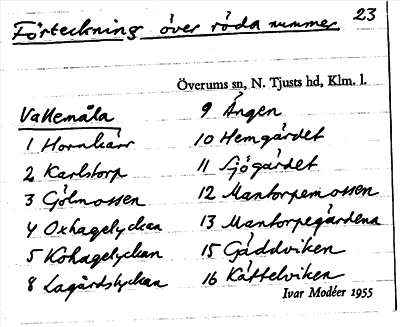 23
Förteckning över röda nummer
Överums sn, N. Tjusts hd, Klm. l.
Vallemåla
1 Hornkärr
2 Karlstorp
3 Gölmossen
4 Oxhagelyckan
5 Kohagelyckan
8 Lagårdslyckan
9 Ängen
10 Hemgärdet
11 Sjögärdet
12 Mantorpemossen
13 Mantorpegärdena
15 Gäddviken
16 Kättelviken
Ivar Modéer 1955